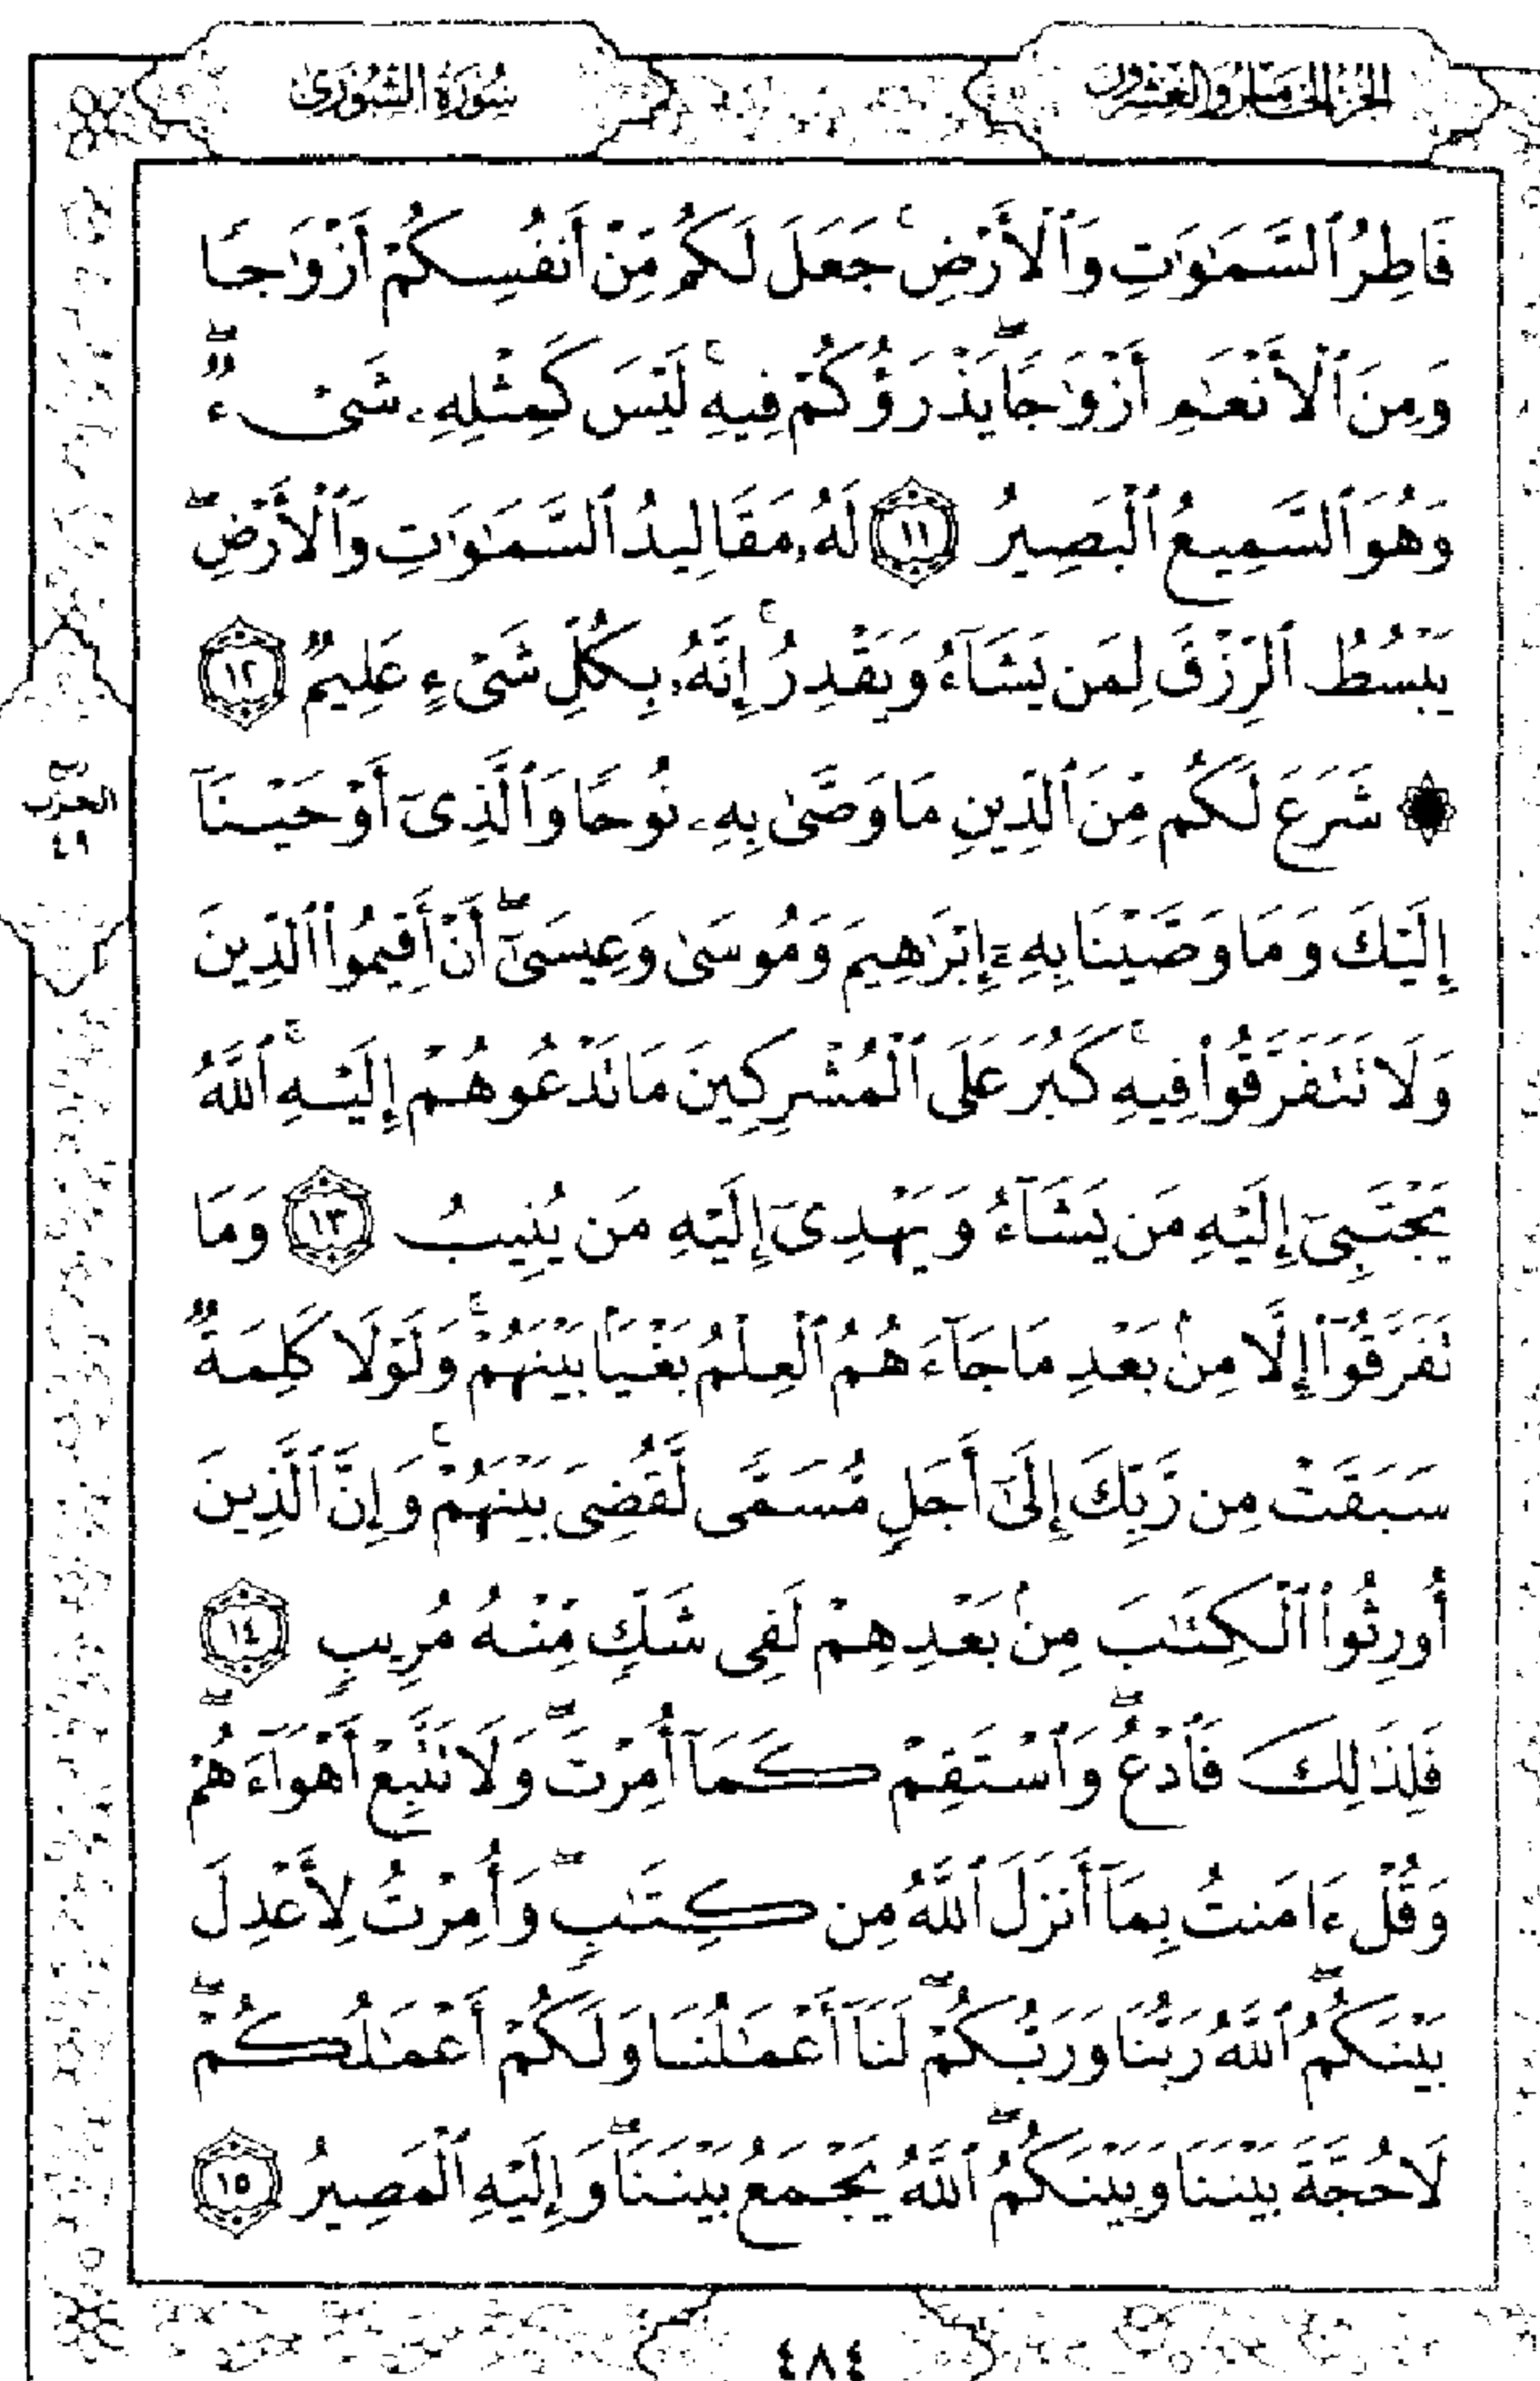 الجزء الخامس والعشرون
سُورَةُ الشُّورَىٰ
فَاطِرُ ٱلسَّمَٰوَٰتِ وَٱلْأَرْضِ ۚ جَعَلَ لَكُم مِّنْ أَنفُسِكُمْ أَزْوَٰجًا
وَمِنَ ٱلْأَنْعَٰمِ أَزْوَٰجًا ۖ يَذْرَؤُكُمْ فِيهِ ۚ لَيْسَ كَمِثْلِهِۦ شَىْءٌ ۖ
وَهُوَ ٱلسَّمِيعُ ٱلْبَصِيرُ ١١ لَهُۥ مَقَالِيدُ ٱلسَّمَٰوَٰتِ وَٱلْأَرْضِ ۖ
يَبْسُطُ ٱلرِّزْقَ لِمَن يَشَآءُ وَيَقْدِرُ ۚ إِنَّهُۥ بِكُلِّ شَىْءٍ عَلِيمٌ ١٢
۞ شَرَعَ لَكُم مِّنَ ٱلدِّينِ مَا وَصَّىٰ بِهِۦ نُوحًا وَٱلَّذِىٓ أَوْحَيْنَآ
إِلَيْكَ وَمَا وَصَّيْنَا بِهِۦٓ إِبْرَٰهِيمَ وَمُوسَىٰ وَعِيسَىٰٓ ۖ أَنْ أَقِيمُوا۟ ٱلدِّينَ
وَلَا تَتَفَرَّقُوا۟ فِيهِ ۚ كَبُرَ عَلَى ٱلْمُشْرِكِينَ مَا تَدْعُوهُمْ إِلَيْهِ ۚ ٱللَّهُ
يَجْتَبِىٓ إِلَيْهِ مَن يَشَآءُ وَيَهْدِىٓ إِلَيْهِ مَن يُنِيبُ ١٣ وَمَا
تَفَرَّقُوٓا۟ إِلَّا مِنۢ بَعْدِ مَا جَآءَهُمُ ٱلْعِلْمُ بَغْيًۢا بَيْنَهُمْ ۚ وَلَوْلَا كَلِمَةٌ
سَبَقَتْ مِن رَّبِّكَ إِلَىٰٓ أَجَلٍ مُّسَمًّى لَّقُضِىَ بَيْنَهُمْ ۚ وَإِنَّ ٱلَّذِينَ
أُورِثُوا۟ ٱلْكِتَٰبَ مِنۢ بَعْدِهِمْ لَفِى شَكٍّ مِّنْهُ مُرِيبٍ ١٤
فَلِذَٰلِكَ فَٱدْعُ ۖ وَٱسْتَقِمْ كَمَآ أُمِرْتَ ۖ وَلَا تَتَّبِعْ أَهْوَآءَهُمْ ۖ
وَقُلْ ءَامَنتُ بِمَآ أَنزَلَ ٱللَّهُ مِن كِتَٰبٍ ۖ وَأُمِرْتُ لِأَعْدِلَ
بَيْنَكُمُ ۖ ٱللَّهُ رَبُّنَا وَرَبُّكُمْ ۖ لَنَآ أَعْمَٰلُنَا وَلَكُمْ أَعْمَٰلُكُمْ ۖ
لَا حُجَّةَ بَيْنَنَا وَبَيْنَكُمُ ۖ ٱللَّهُ يَجْمَعُ بَيْنَنَا ۖ وَإِلَيْهِ ٱلْمَصِيرُ ١٥
الحزب
٤٩
٤٨٤